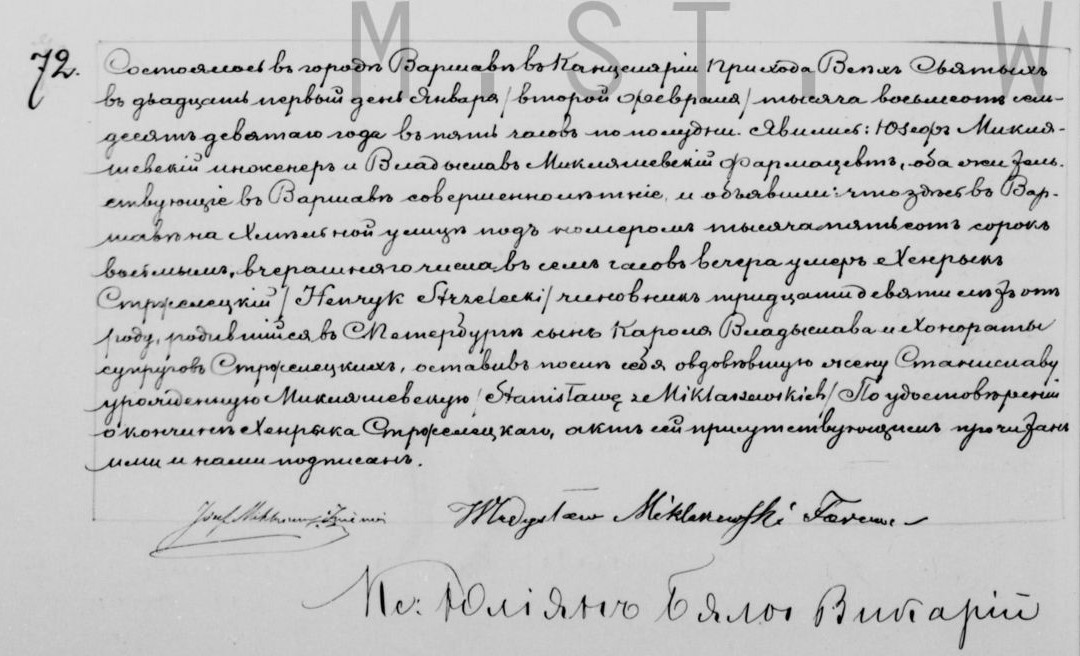 M S T W
72. Состоялось въ городѣ Варшавѣ въ Канцеляріи Прихода Всѣхъ Святыхъ
въ двадцать первый день Января / второй Февраля / тысяча восемьсотъ семь-
десятъ девятаго года въ пять часовъ по полудни. Явились: Юзефъ Микля-
шевскій инженеръ и Владыславъ Микляшевскій фармацевтъ, оба жи тель-
ствующіе въ Варшавѣ совершеннолѣтніе, и объявили: что здѣсь въ Вар-
шавѣ на Хмѣльной улицѣ подъ номеромъ тысяча пятьсотъ сорокъ
восьмымъ, вчерашняго числа въ семь часовъ вечера умеръ Хенрыкъ
Стржелецкій / Henryk Strzelecki / чиновникъ тридцати девяти лѣтъ отъ
роду, родившійся въ С Петербургѣ сынъ Кароля Владыслава и Хонораты
супруговъ Стржелецкихъ, оставивъ послѣ себя овдовѣвшую жену Станиславу
урожденную Микляшевскую / Stanisławę z Miklaszewskich / По удостовѣреніи
о кончинѣ Хенрыка Стржелецкаго, актъ сей присутствующимъ прочитанъ
ими и нами подписанъ.
Józef Miklaszewski Władysław Miklaszewski
Кс: Юліянъ Бялос Викарій